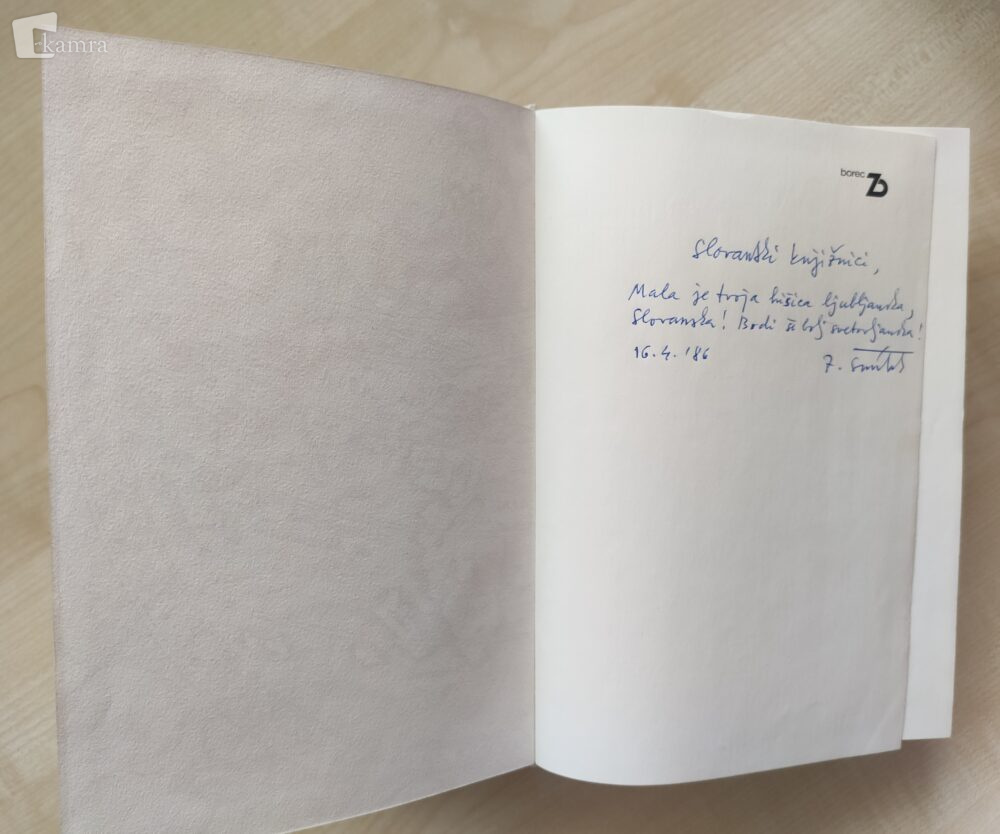 kamra
borec
Slovanski knjižnici,
Mala je tvoja hišica ljubljanska,
Slovanska! Bodi še bolj svetovljanska!
16. 4. '86